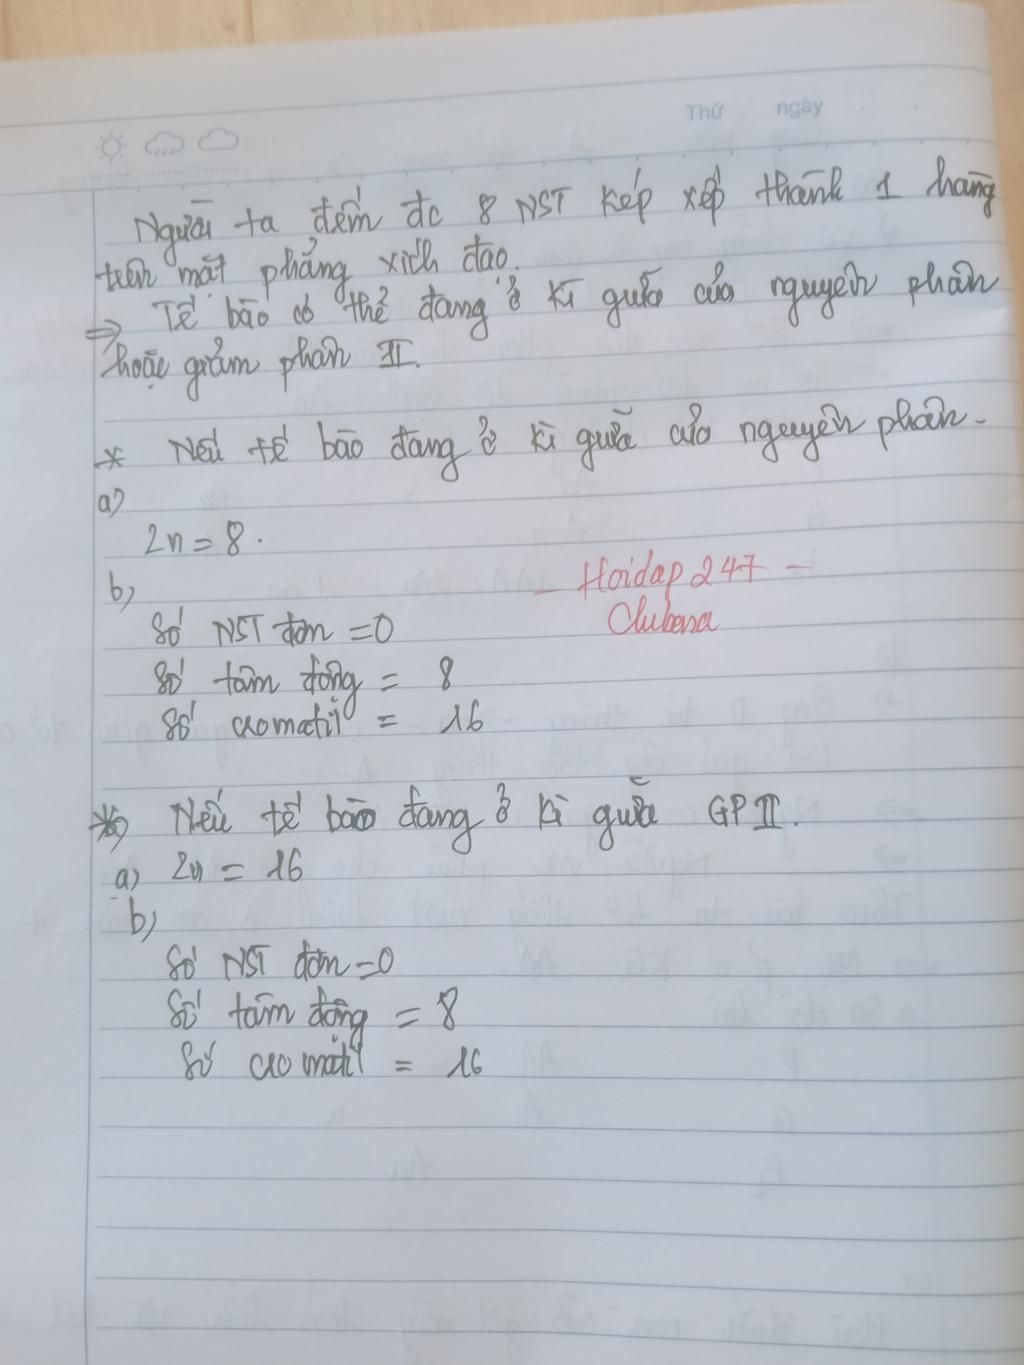 Thứ ngày
Người ta đếm đc 8 NST kép xếp thành 1 hàng
trên mặt phẳng xích đạo.
=> Tế bào có thể đang ở kì giữa của nguyên phân
hoặc giảm phân II.
* Nếu tế bào đang ở kì giữa của nguyên phân.
a)
2n = 8.
b)
- Hoidap 247 -
Số NST đơn = 0
Số tâm động = 8
Số cromatit = 16
* Nếu tế bào đang ở kì giữa GP II.
a) 2n = 16
b)
Số NST đơn = 0
Số tâm động = 8
Số cromatit = 16